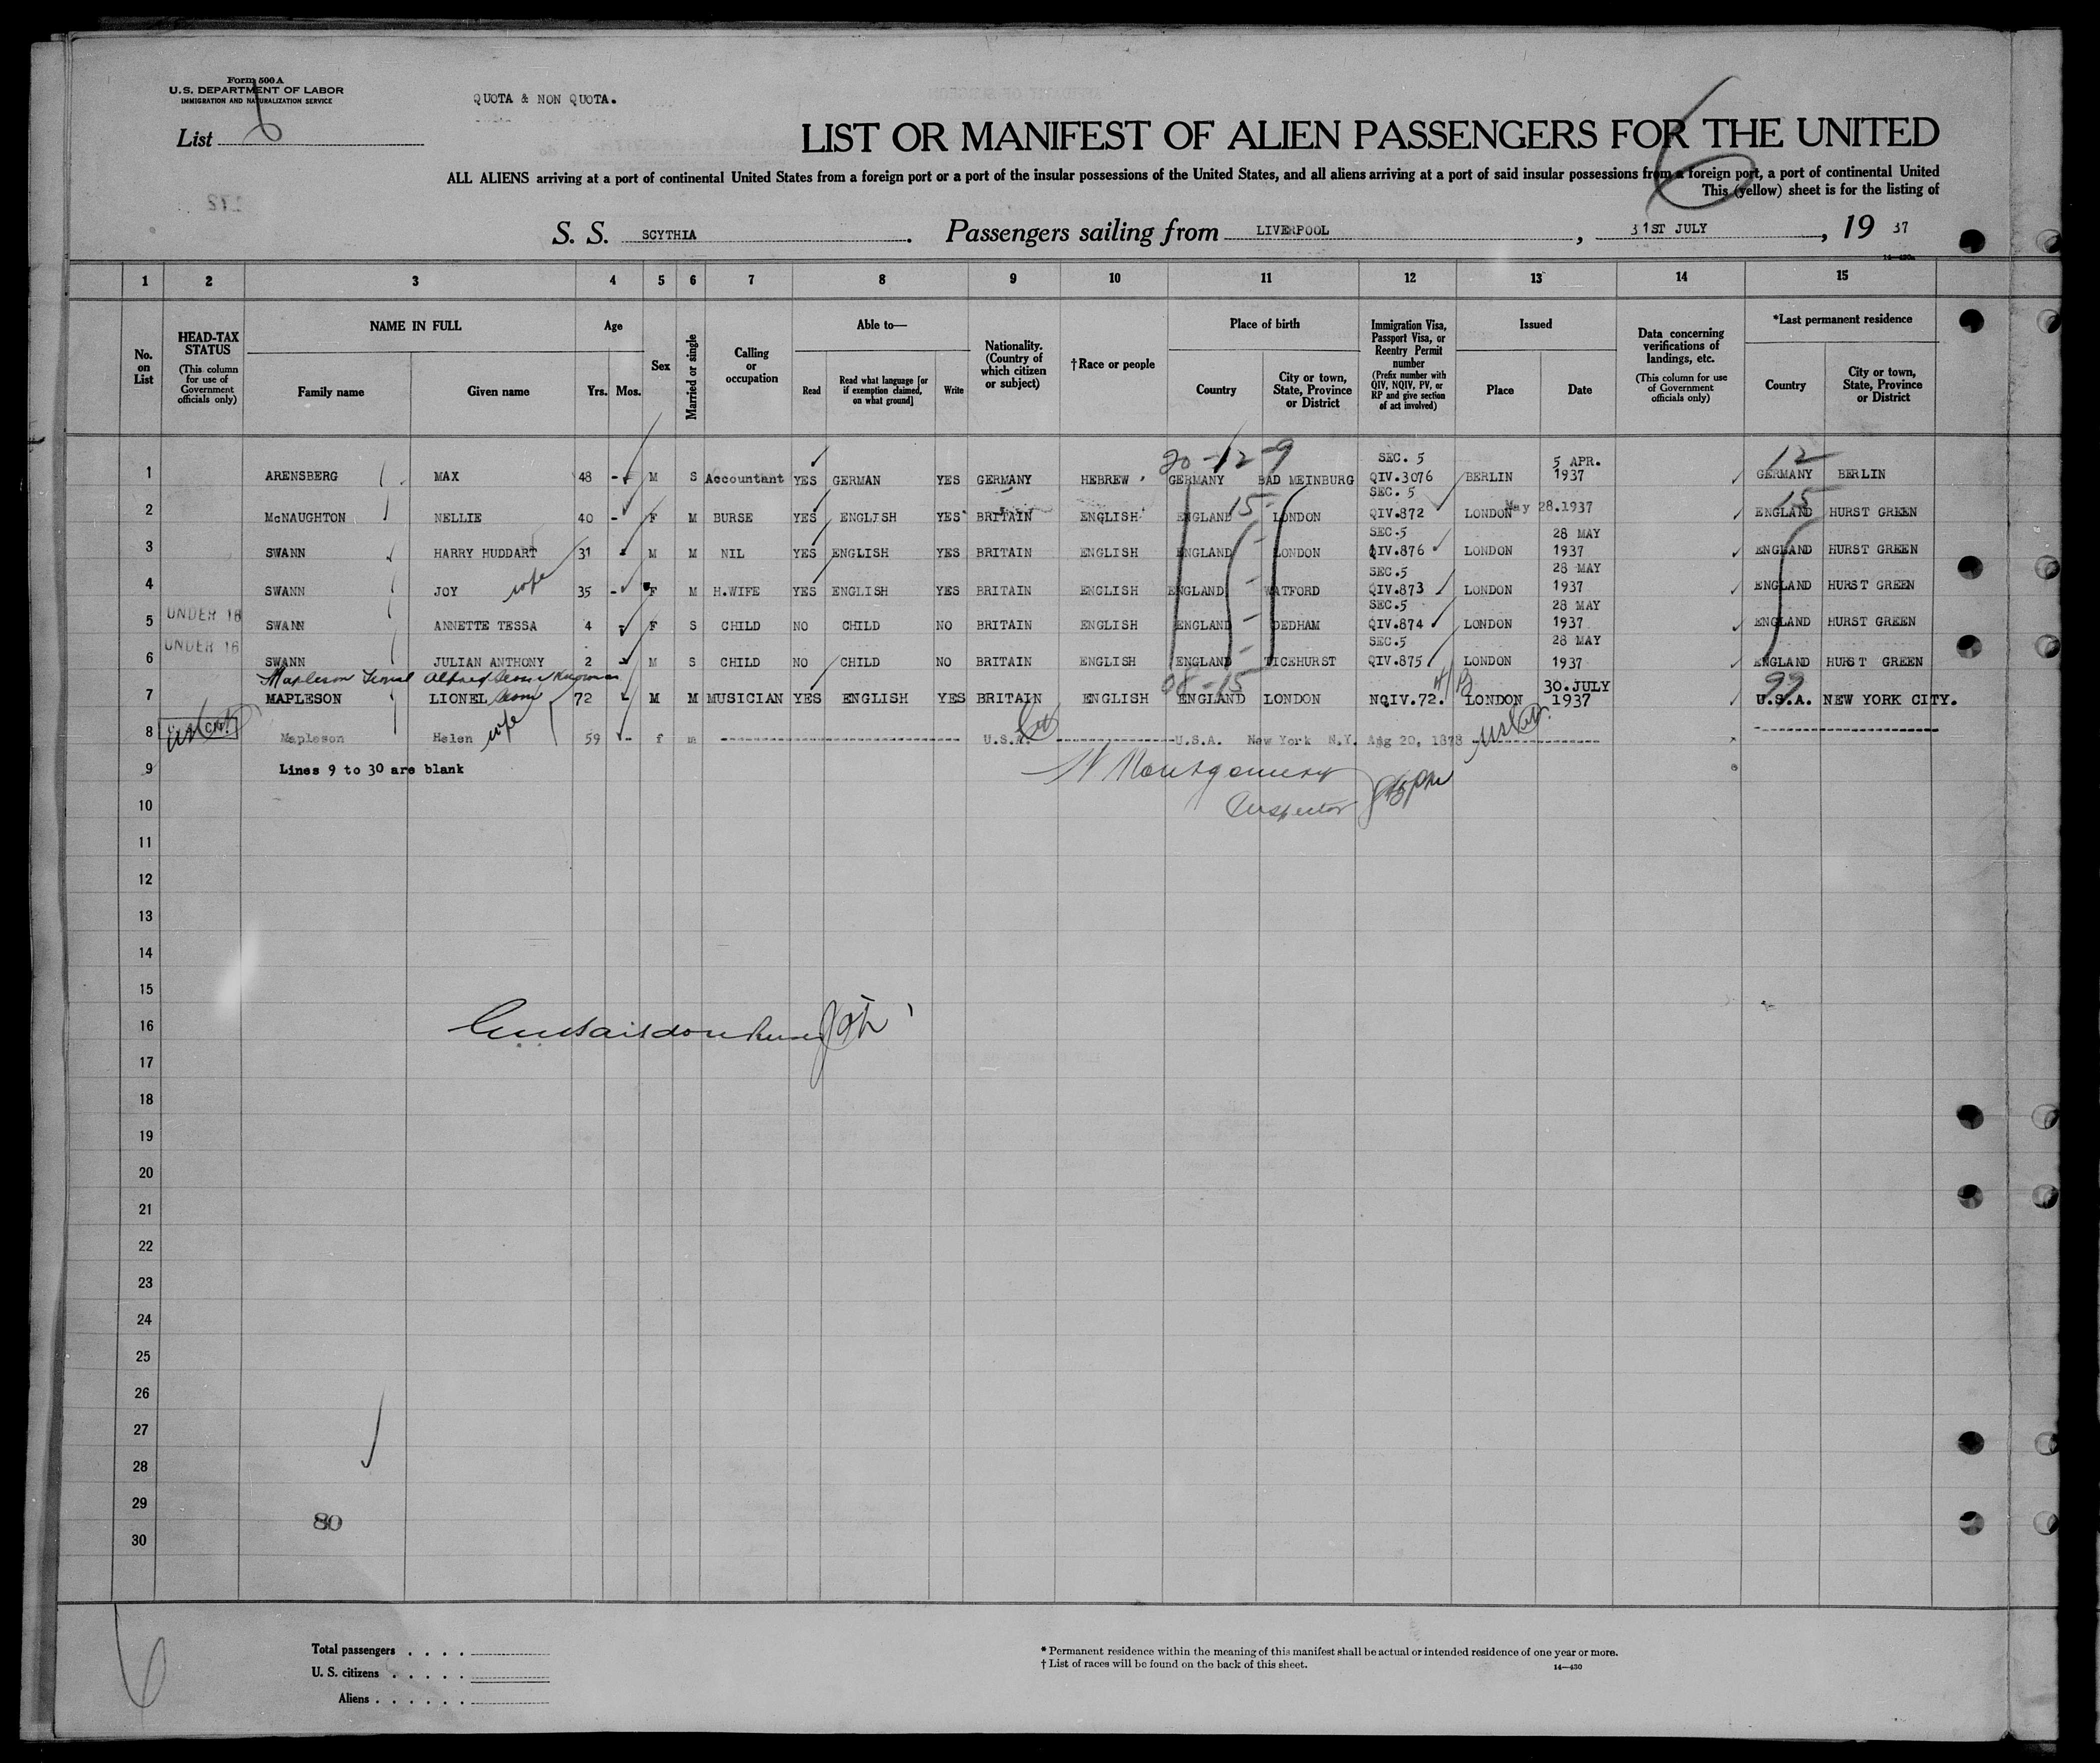 Form 500 A
U. S. DEPARTMENT OF LABOR
IMMIGRATION AND NATURALIZATION SERVICE
QUOTA & NON QUOTA.
List 6
LIST OR MANIFEST OF ALIEN PASSENGERS FOR THE UNITED
6
ALL ALIENS arriving at a port of continental United States from a foreign port or a port of the insular possessions of the United States, and all aliens arriving at a port of said insular possessions from a foreign port, a port of continental United
This (yellow) sheet is for the listing of
S. S. SCYTHIA. Passengers sailing from LIVERPOOL, 31ST JULY, 19 37
1 2 3 4 5 6 7 8 9 10 11 12 13 14 15
No. on List
HEAD-TAX STATUS (This column for use of Government officials only)
NAME IN FULL
Family name Given name
Age
Yrs. Mos.
Sex
Married or single
Calling or occupation
Able to—
Read Read what language [or if exemption claimed, on what ground] Write
Nationality. (Country of which citizen or subject)
†Race or people
Place of birth
Country City or town, State, Province or District
Immigration Visa, Passport Visa, or Reentry Permit number (Prefix number with QIV, NQIV, PV, or RP and give section of act involved)
Issued
Place Date
Data concerning verifications of landings, etc. (This column for use of Government officials only)
*Last permanent residence
Country City or town, State, Province or District
20-12-9 SEC. 5 5 APR. 12
1 ARENSBERG MAX 48 - M S Accountant YES GERMAN YES GERMANY HEBREW GERMANY BAD MEINBURG QIV.3076 BERLIN 1937 GERMANY BERLIN
15 SEC. 5 15
2 McNAUGHTON NELLIE 40 - F M BURSE YES ENGLISH YES BRITAIN ENGLISH ENGLAND LONDON QIV.872 LONDON May 28.1937 ENGLAND HURST GREEN
SEC.5 28 MAY
3 SWANN HARRY HUDDART 31 - M M NIL YES ENGLISH YES BRITAIN ENGLISH ENGLAND LONDON QIV.876 LONDON 1937 ENGLAND HURST GREEN
SEC.5 28 MAY
4 SWANN JOY wife 35 - F M H.WIFE YES ENGLISH YES BRITAIN ENGLISH ENGLAND WATFORD QIV.873 LONDON 1937 ENGLAND HURST GREEN
UNDER 16 SEC.5 28 MAY
5 SWANN ANNETTE TESSA 4 - F S CHILD NO CHILD NO BRITAIN ENGLISH ENGLAND DEDHAM QIV.874 LONDON 1937 ENGLAND HURST GREEN
UNDER 16 SEC.5 28 MAY
6 SWANN JULIAN ANTHONY 2 - M S CHILD NO CHILD NO BRITAIN ENGLISH ENGLAND TICEHURST QIV.875 LONDON 1937 ENGLAND HURST GREEN
Mapleson Alfred 08-15 30.JULY 99
7 MAPLESON LIONEL 72 - M M MUSICIAN YES ENGLISH YES BRITAIN ENGLISH ENGLAND LONDON NQIV.72. LONDON 1937 U.S.A. NEW YORK CITY.
8 Mapleson Helen wife 59 - f m U.S.A. U.S.A. New York N.Y. Aug 20, 1878
9 Lines 9 to 30 are blank
Montgomery
Inspector
10
11
12
13
14
15
16
17
18
19
20
21
22
23
24
25
26
27
28
29
80
30
6
Total passengers . . . .
U. S. citizens . . . . .
Aliens . . . . . .
* Permanent residence within the meaning of this manifest shall be actual or intended residence of one year or more.
† List of races will be found on the back of this sheet. 14—430